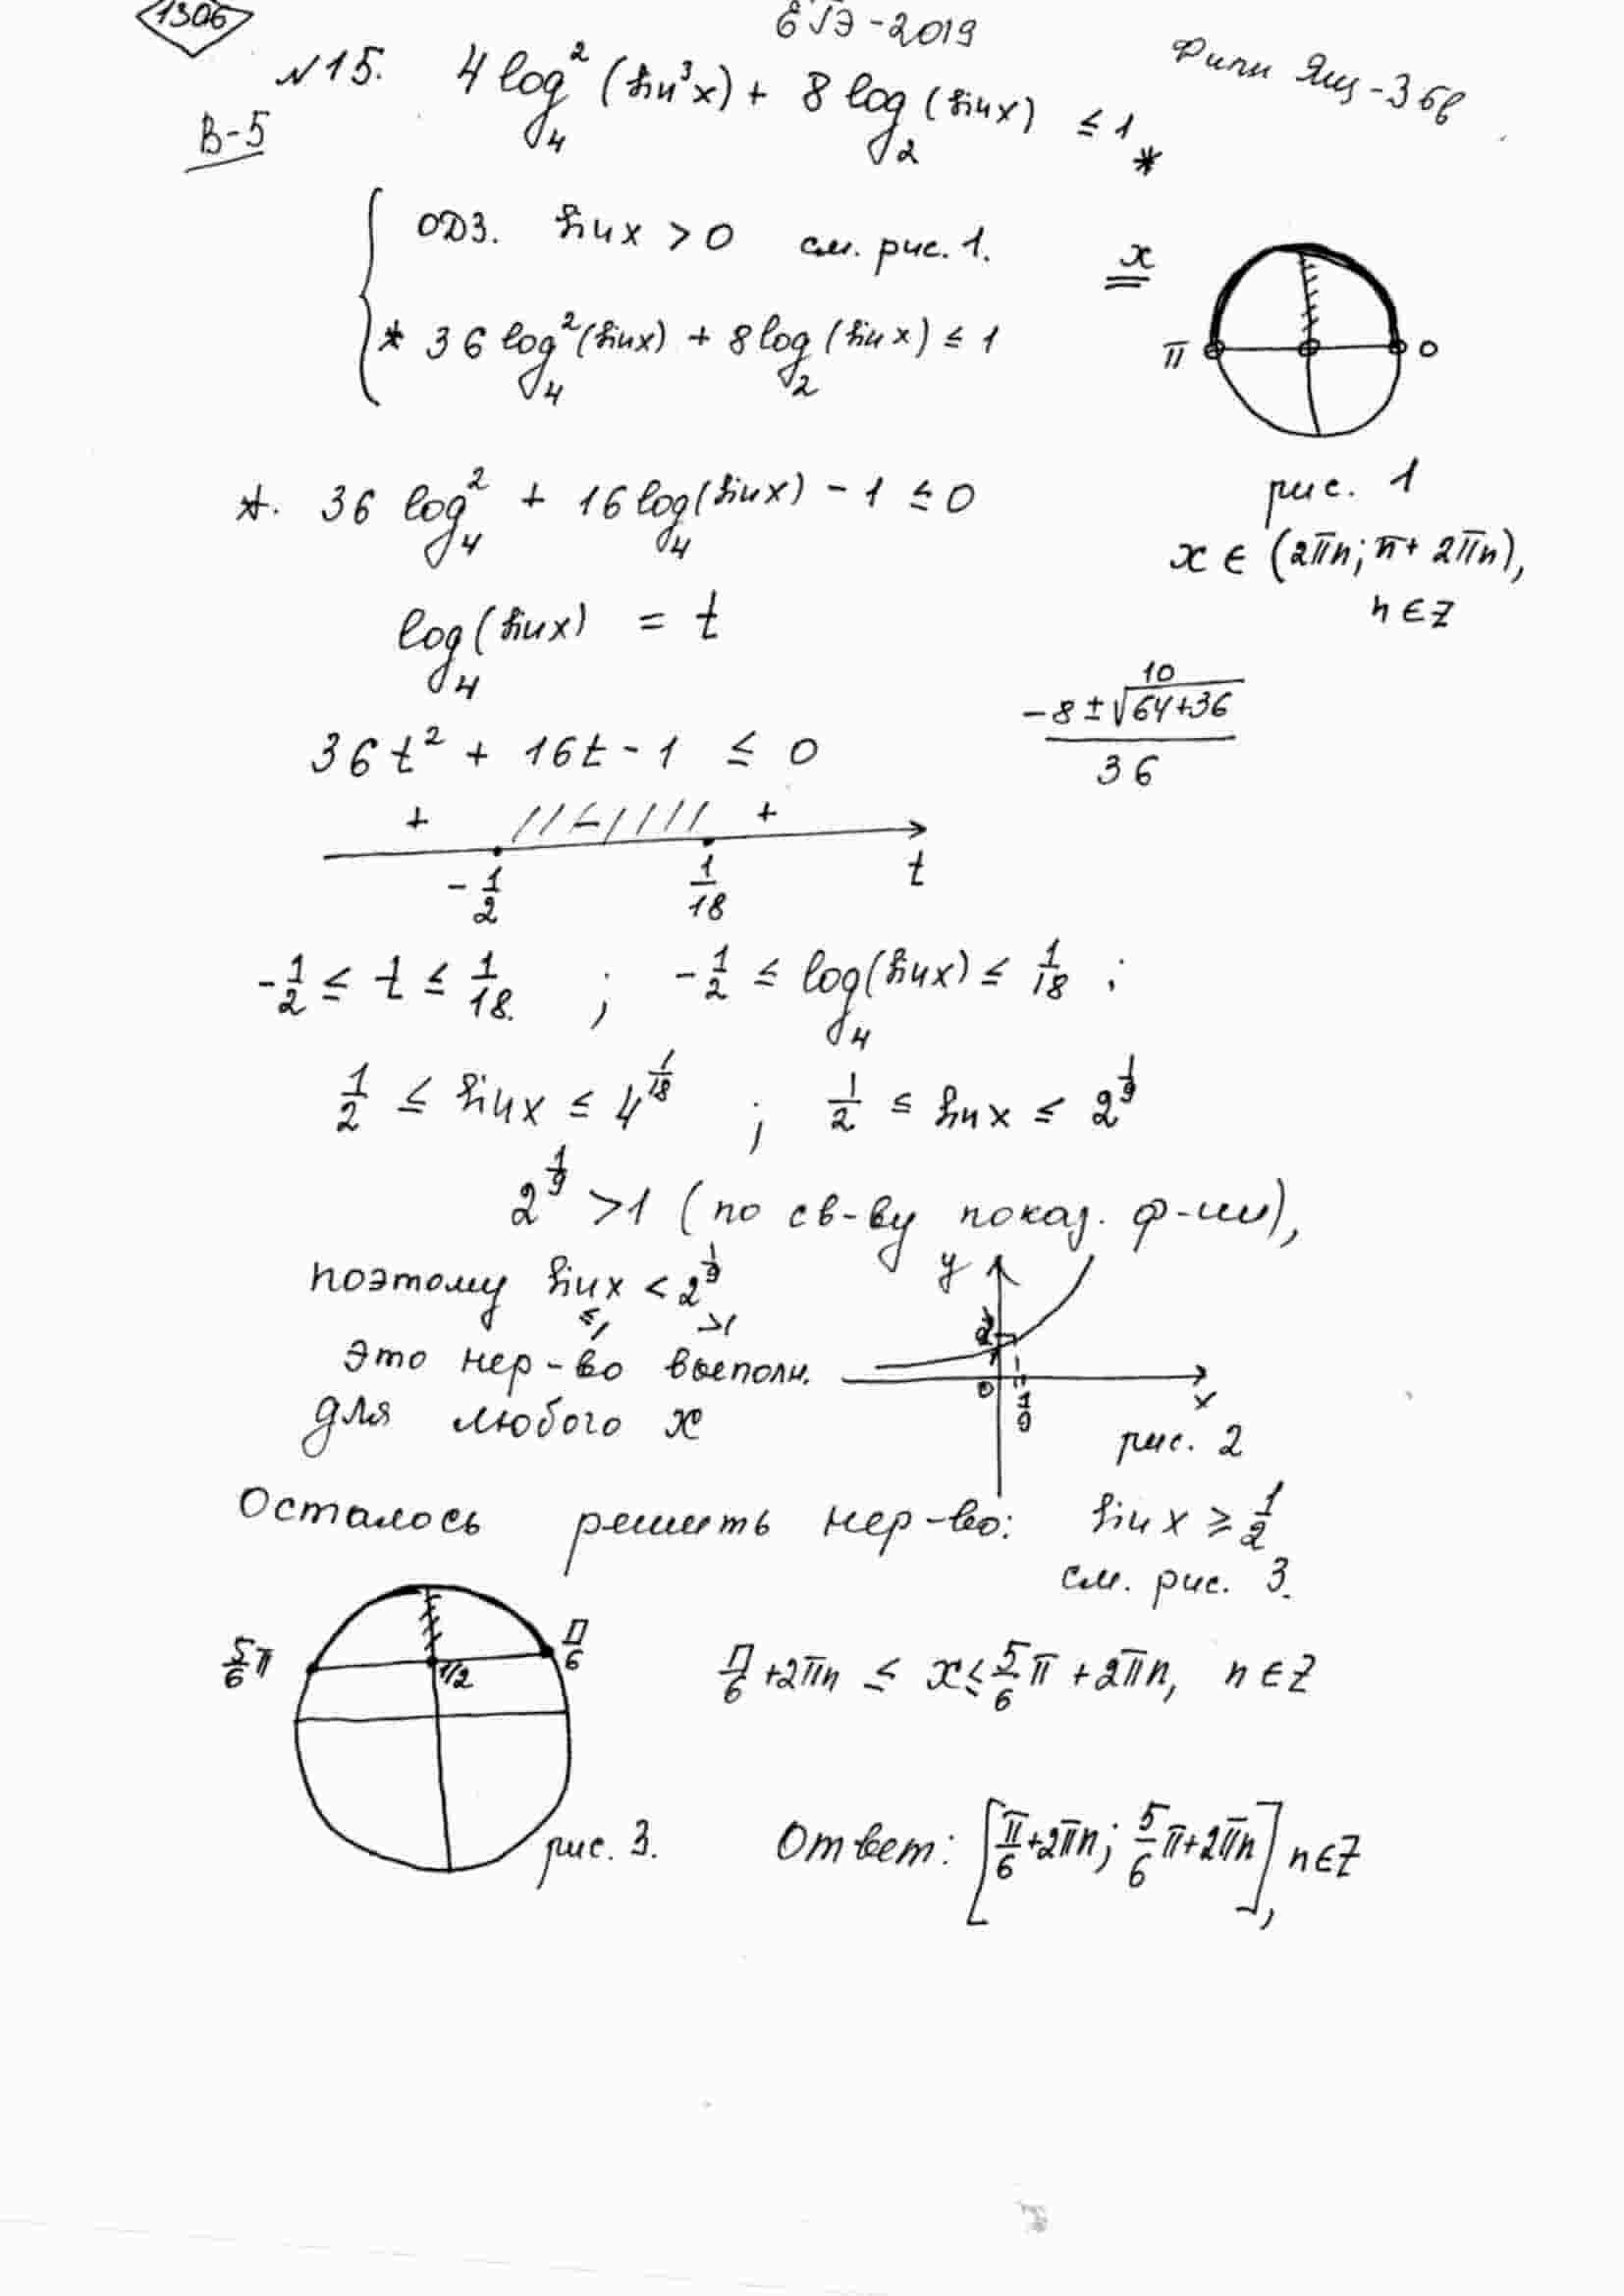 1306
ЕГЭ-2019
Фипи Ящ-36в
№15. 4log₄²(sin³x) + 8log₂(sinx) ≤ 1 *
В-5
ОДЗ. sinx > 0 см. рис. 1.
* 36log₄²(sinx) + 8log₂(sinx) ≤ 1
x
π 0
рис. 1
x ∈ (2πn; π + 2πn),
n ∈ Z
*. 36log₄² + 16log₄(sinx) - 1 ≤ 0
log₄(sinx) = t
36t² + 16t - 1 ≤ 0
10
-8 ± √64+36
36
+ - +
-1/2 1/18 t
-1/2 ≤ t ≤ 1/18. ; -1/2 ≤ log₄(sinx) ≤ 1/18 ;
1/2 ≤ sinx ≤ 4^(1/18) ; 1/2 ≤ sinx ≤ 2^(1/9)
2^(1/9) > 1 (по св-ву показ. ф-ии),
поэтому sinx < 2^(1/9)
≤1 >1
это нер-во выполн.
для любого x
y
1
0 1/9 x
рис. 2
Осталось решить нер-во: sinx ≥ 1/2
см. рис. 3.
5/6 π 1/2 π/6
π/6 + 2πn ≤ x ≤ 5/6 π + 2πn, n ∈ Z
рис. 3.
Ответ: [π/6 + 2πn; 5/6 π + 2πn], n ∈ Z